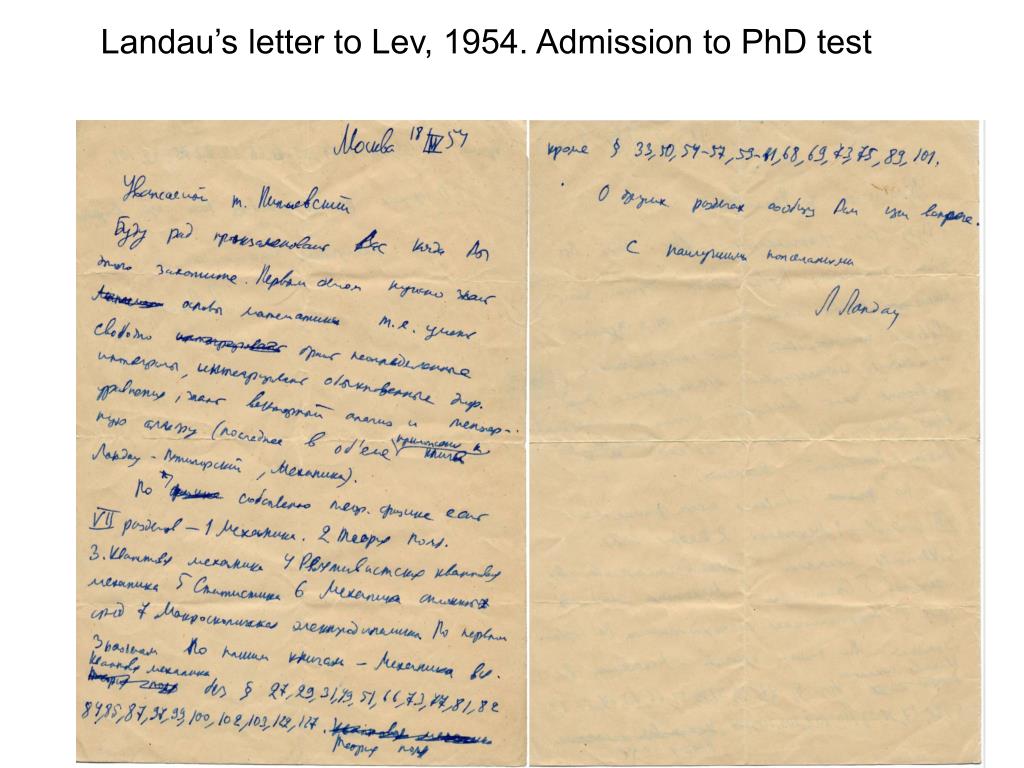 Landau’s letter to Lev, 1954. Admission to PhD test
Москва 18/IV 54
Уважаемый т. Питаевский
Буду рад проэкзаменовать Вас когда Вы
этого захотите. Первым делом нужно знать
основы математики т.е. уметь
свободно брать неопределенные
интегралы, интегрировать обыкновенные диф.
уравнения, знать векторный анализ и тензор-
ную алгебру (последнее в объеме приложения к книге
Ландау - Пятигорский, Механика).
По собственно теор. физике есть
VII разделов – 1 Механика. 2 Теория поля.
3. Квантовая механика 4 Релятивистская квантовая
механика 5 Статистика 6 Механика сплошных
сред 7 Макроскопическая электродинамика По первым
3 разделам по нашим книгам – Механика вся.
Квантовая механика
без § 27, 29, 31, 51, 66, 73, 77, 81, 82
84, 85, 87, 99, 100, 102, 103, 122, 127.
Теория поля
кроме § 33, 50, 54-57, 59-61, 68, 69, 73, 75, 89, 101.
О других разделах сообщу Вам
С наилучшими пожеланиями
Л Ландау